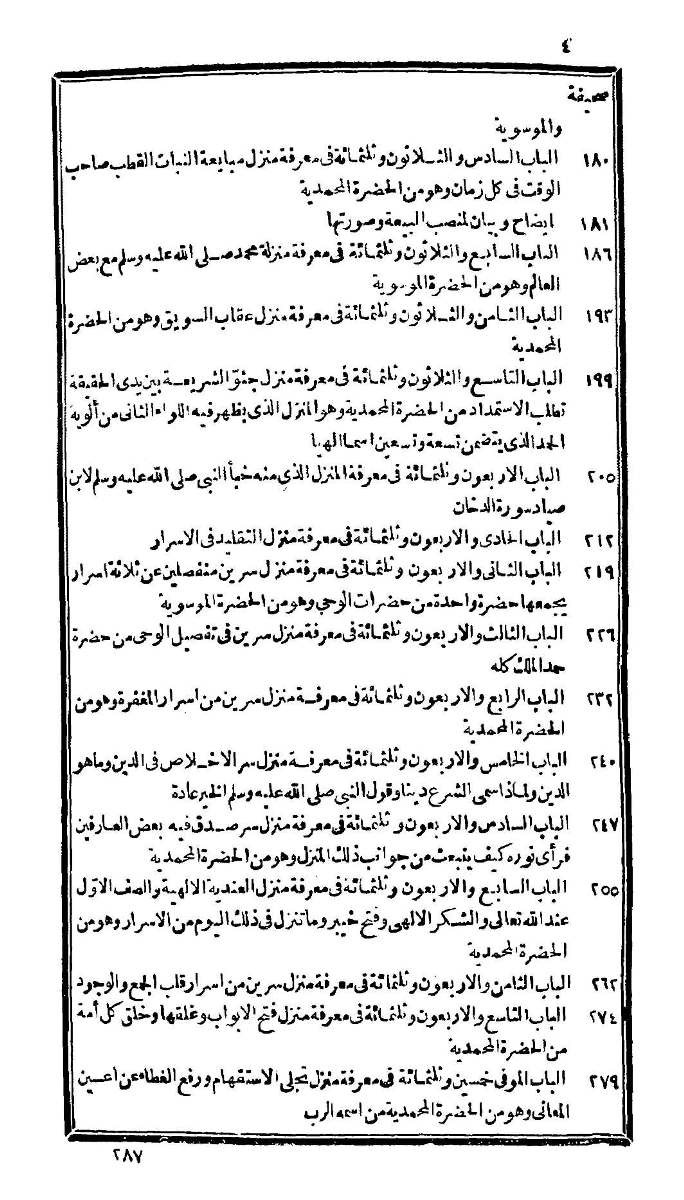 ٤
صحيفة
والموسوية
١٨٠ الباب السادس والثلاثون وثلثمائة فى معرفة منزل مبايعة النبات القطب صاحب
الوقت فى كل زمان وهو من الحضرة المحمدية
١٨١ ايضاح وبيان لمنصب البيعة وصورتها
١٨٦ الباب السابع والثلاثون وثلثمائة فى معرفة منزلة محمد صلى الله عليه وسلم مع بعض
العالم وهو من الحضرة الموسوية
١٩٣ الباب الثامن والثلاثون وثلثمائة فى معرفة منزل عقاب السويق وهو من الحضرة
المحمدية
١٩٩ الباب التاسع والثلاثون وثلثمائة فى معرفة منزل جثوّ الشريعة بين يدى الحقيقة
تطلب الاستمداد من الحضرة المحمدية وهو المنزل الذى يظهر فيه اللواء الثانى من ألوية
الحمد الذى يتضمن تسعة وتسعين اسما الهيا
٢٠٥ الباب الاربعون وثلثمائة فى معرفة المنزل الذى منه خبأ النبى صلى الله عليه وسلم لابن
صياد سورة الدخان
٢١٢ الباب الحادى والاربعون وثلثمائة فى معرفة منزل التقليد فى الاسرار
٢١٩ الباب الثانى والاربعون وثلثمائة فى معرفة منزل سرين منفصلين عن ثلاثة اسرار
يجمعها حضرة واحدة من حضرات الوحي وهو من الحضرة الموسوية
٢٢٦ الباب الثالث والاربعون وثلثمائة فى معرفة منزل سرين فى تفصيل الوحى من حضرة
حمد الملك كله
٢٣٢ الباب الرابع والاربعون وثلثمائة فى معرفة منزل سرين من اسرار المغفرة وهو من
الحضرة المحمدية
٢٤٠ الباب الخامس والاربعون وثلثمائة فى معرفة منزل سر الاخلاص فى الدين وما هو
الدين ولماذا سمى الشرع دينا وقول النبى صلى الله عليه وسلم الخير عادة
٢٤٧ الباب السادس والاربعون وثلثمائة فى معرفة منزل سر صدق فيه بعض العارفين
فرأى نوره كيف ينبعث من جوانب ذلك المنزل وهو من الحضرة المحمدية
٢٥٥ الباب السابع والاربعون وثلثمائة فى معرفة منزل العندية الالهية والصف الاوّل
عند الله تعالى والشكر الالهى وفتح خيبر وما تنزل فى ذلك اليوم من الاسرار وهو من
الحضرة المحمدية
٢٦٢ الباب الثامن والاربعون وثلثمائة فى معرفة منزل سرين من اسرار قلب الجمع والوجود
٢٧٤ الباب التاسع والاربعون وثلثمائة فى معرفة منزل فتح الابواب وغلقها وخلق كل أمة
من الحضرة المحمدية
٢٧٩ الباب الموفى خمسين وثلثمائة فى معرفة منزل تجلى الاستفهام ورفع الغطاء عن اعين
المعانى وهو من الحضرة المحمدية من اسمه الرب
٢٨٧